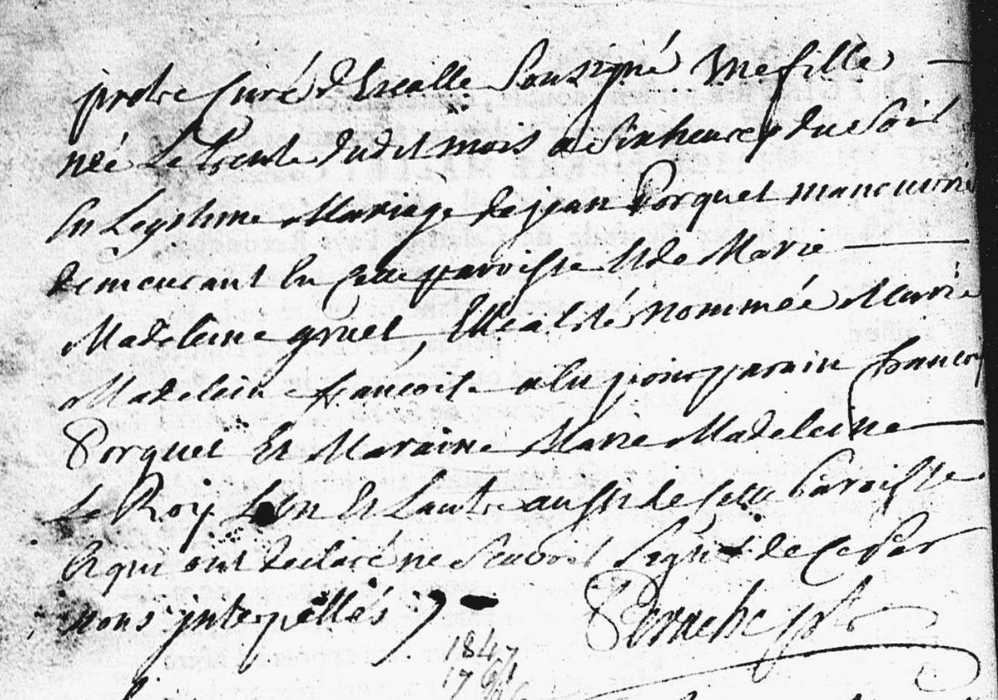 prestre Curé d'Escalle Sousigné une fille
née Le trente dudit mois a Six heures du Soir
En Legitime Mariage de jean Porquet manouvrie
demeurant En Cette paroisse Et de Marie
Madeleine gruel, Elle a Eté nommée Marie
Madelein francoise a Eu pour parain francois
Porquet Et Maraine Marie Madeleine
Le Roy L'un Et L'autre aussi de Cette Paroisse
Et qui ont declaré ne Scavoir Signer de Ce Par
nous jnterpellés
1847